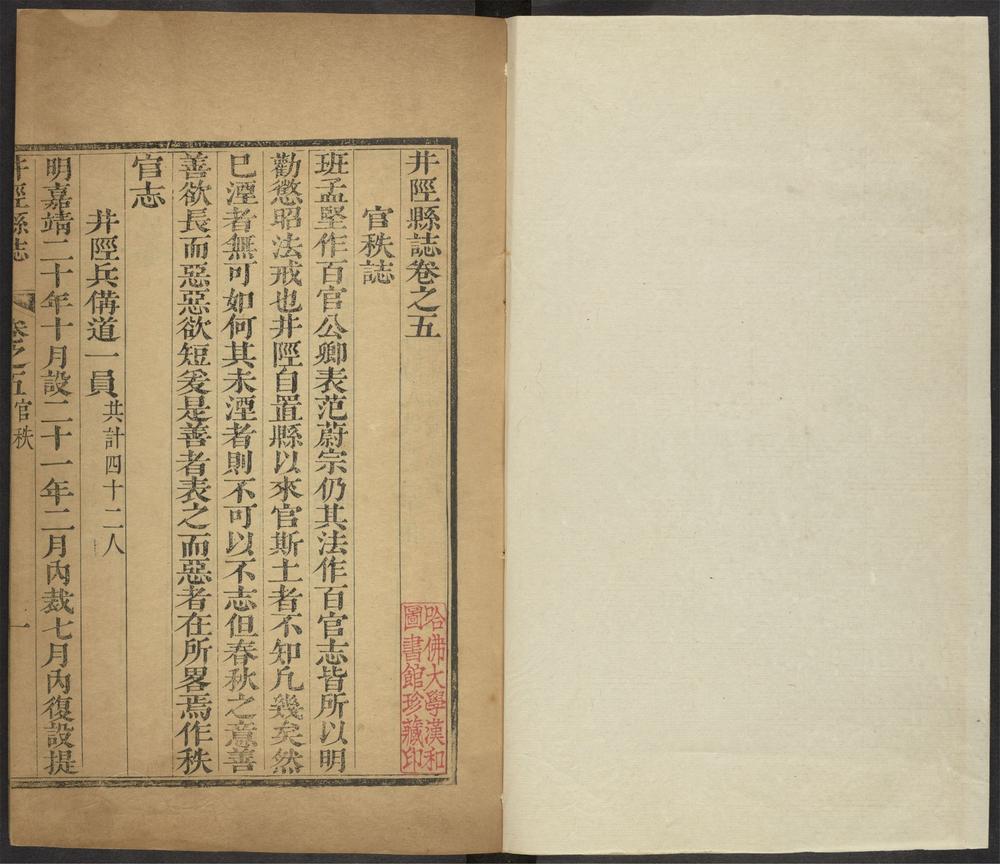 井陘縣誌卷之五
官秩誌
班孟堅作百官公卿表范蔚宗仍其法作百官志皆所以明
勸懲昭法戒也井陘自置縣以來官斯土者不知凡幾矣然
已湮者無可如何其未湮者則不可以不志但春秋之意善
善欲長而惡惡欲短爰是善者表之而惡者在所畧焉作秩
官志
井陘兵俻道一員共計四十二人
明嘉靖二十年十月設二十一年二月內裁七月內復設提
井陘縣誌 卷之五官秩 一
哈佛大學漢和
圖書館珍藏印